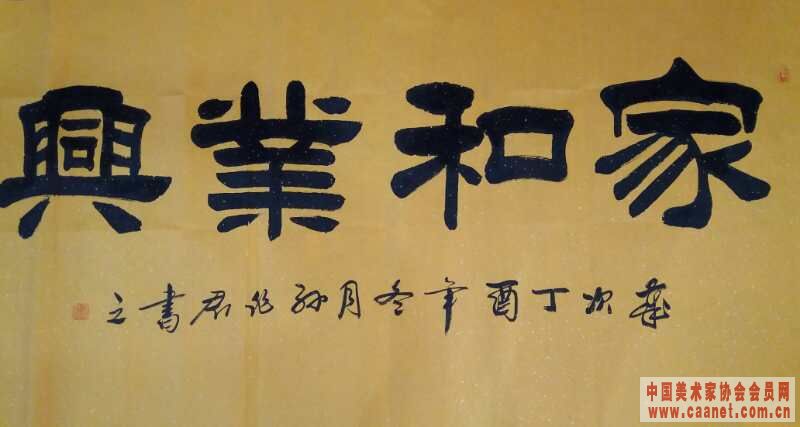 家和業興
歲次丁酉年冬月孫 君書之
中国美术家协会会员网
www.caanet.com.cn